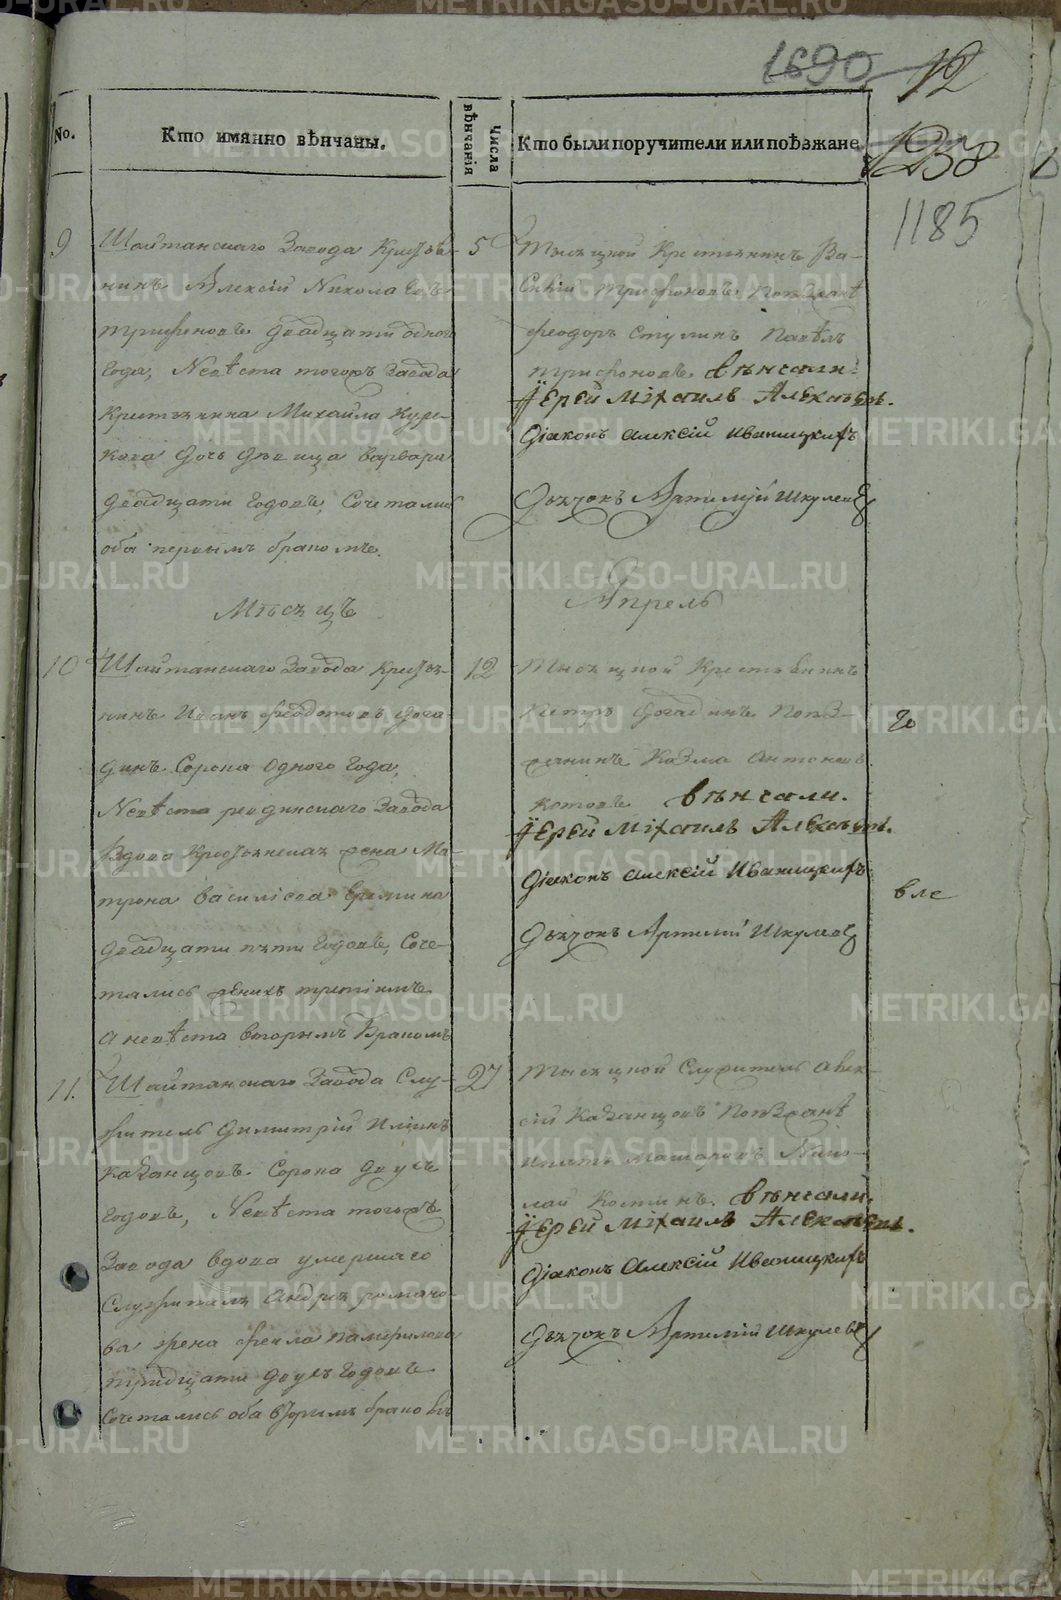 1690 12
1238
1185
No.
Кто имянно вѣнчаны.
Числа вѣнчанія
Кто были поручители или поѣзжане
9
Шайтанскаго Завода Крестья-
нинъ Алексій Николаевъ
Трифоновъ двадцати одного
года, Невѣста тогожъ Завода
Крестьянина Михайла
дочь дѣвица Варвара
двадцати годовъ, Сочетались
оба первымъ бракомъ.
5
Тысяцкой Крестьянинъ Ва-
силій Трифоновъ Поѣзжанѣ
Феодоръ Ступинъ Павелъ
Трифоновъ. вѣнчали:
Іерей Міхаилъ
Діаконъ Алексій Иваницкихъ
Дьячокъ Артемій Шкулевъ
Мѣсяцъ
Апрель
10
Шайтанскаго Завода Крестья-
нинъ Иванъ Федотовъ Дога-
динъ Сорока одного года,
Невѣста ревдинскаго Завода
Вдова Крестьянская жена Ма-
трона Василіева Еремина
двадцати пяти годовъ, Соче-
тались женихъ третіимъ
а невѣста вторымъ бракомъ
12
Тысяцкой Крестьянинъ
Петръ Догадинъ Поѣз-
жанинъ Казма Антоновъ
Котовъ вѣнчали.
Іерей Міхаилъ
Діаконъ Алексій Иваницкихъ
Дьячокъ Артемій Шкулевъ
вле
11.
Шайтанскаго Завода Слу-
житель Димитрій Илиинъ
Казанцовъ Сорока двухъ
годовъ, Невѣста тогожъ
Завода вдова умершаго
Служителя Андрея романо-
ва жена Фекла Памфилова
тридцати двухъ годовъ
Сочетались оба вторымъ бракомъ
27
Тысяцкой Служитель Алек-
сій Казанцовъ Поѣзжанѣ
Игнатъ Макаровъ Нико-
лай Костинъ. вѣнчали.
Іерей Міхаилъ
Діаконъ Алексій Иваницкихъ
Дьячокъ Артемій Шкулевъ
METRIKI.GASO-URAL.RU